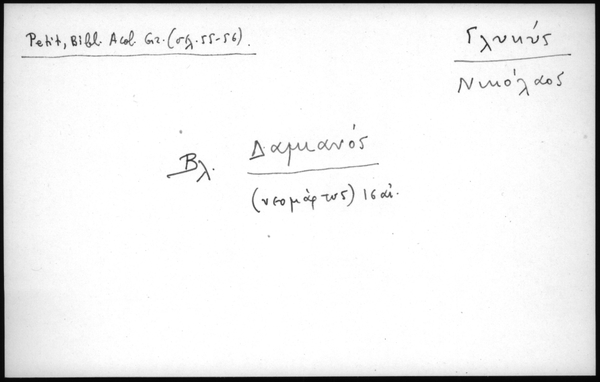 Petit, Bibl. Acol. Gr. (σελ. 55-56).
Γλυκύς
Νικόλαος
Βλ. Δαμιανός
(νεομάρτυς) 16 αἰ.